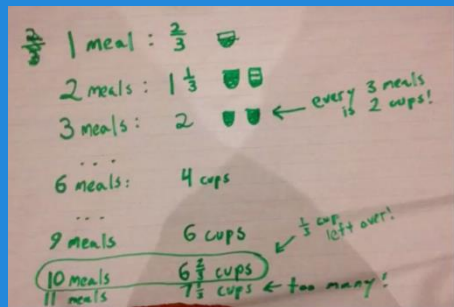 2/3 1 meal : 2/3
2 meals : 1 1/3
3 meals : 2 ← every 3 meals is 2 cups!
...
6 meals: 4 cups
...
9 meals 6 cups
1/3 cup left over!
10 meals 6 2/3 cups
11 meals 7 1/3 cups ← too many!